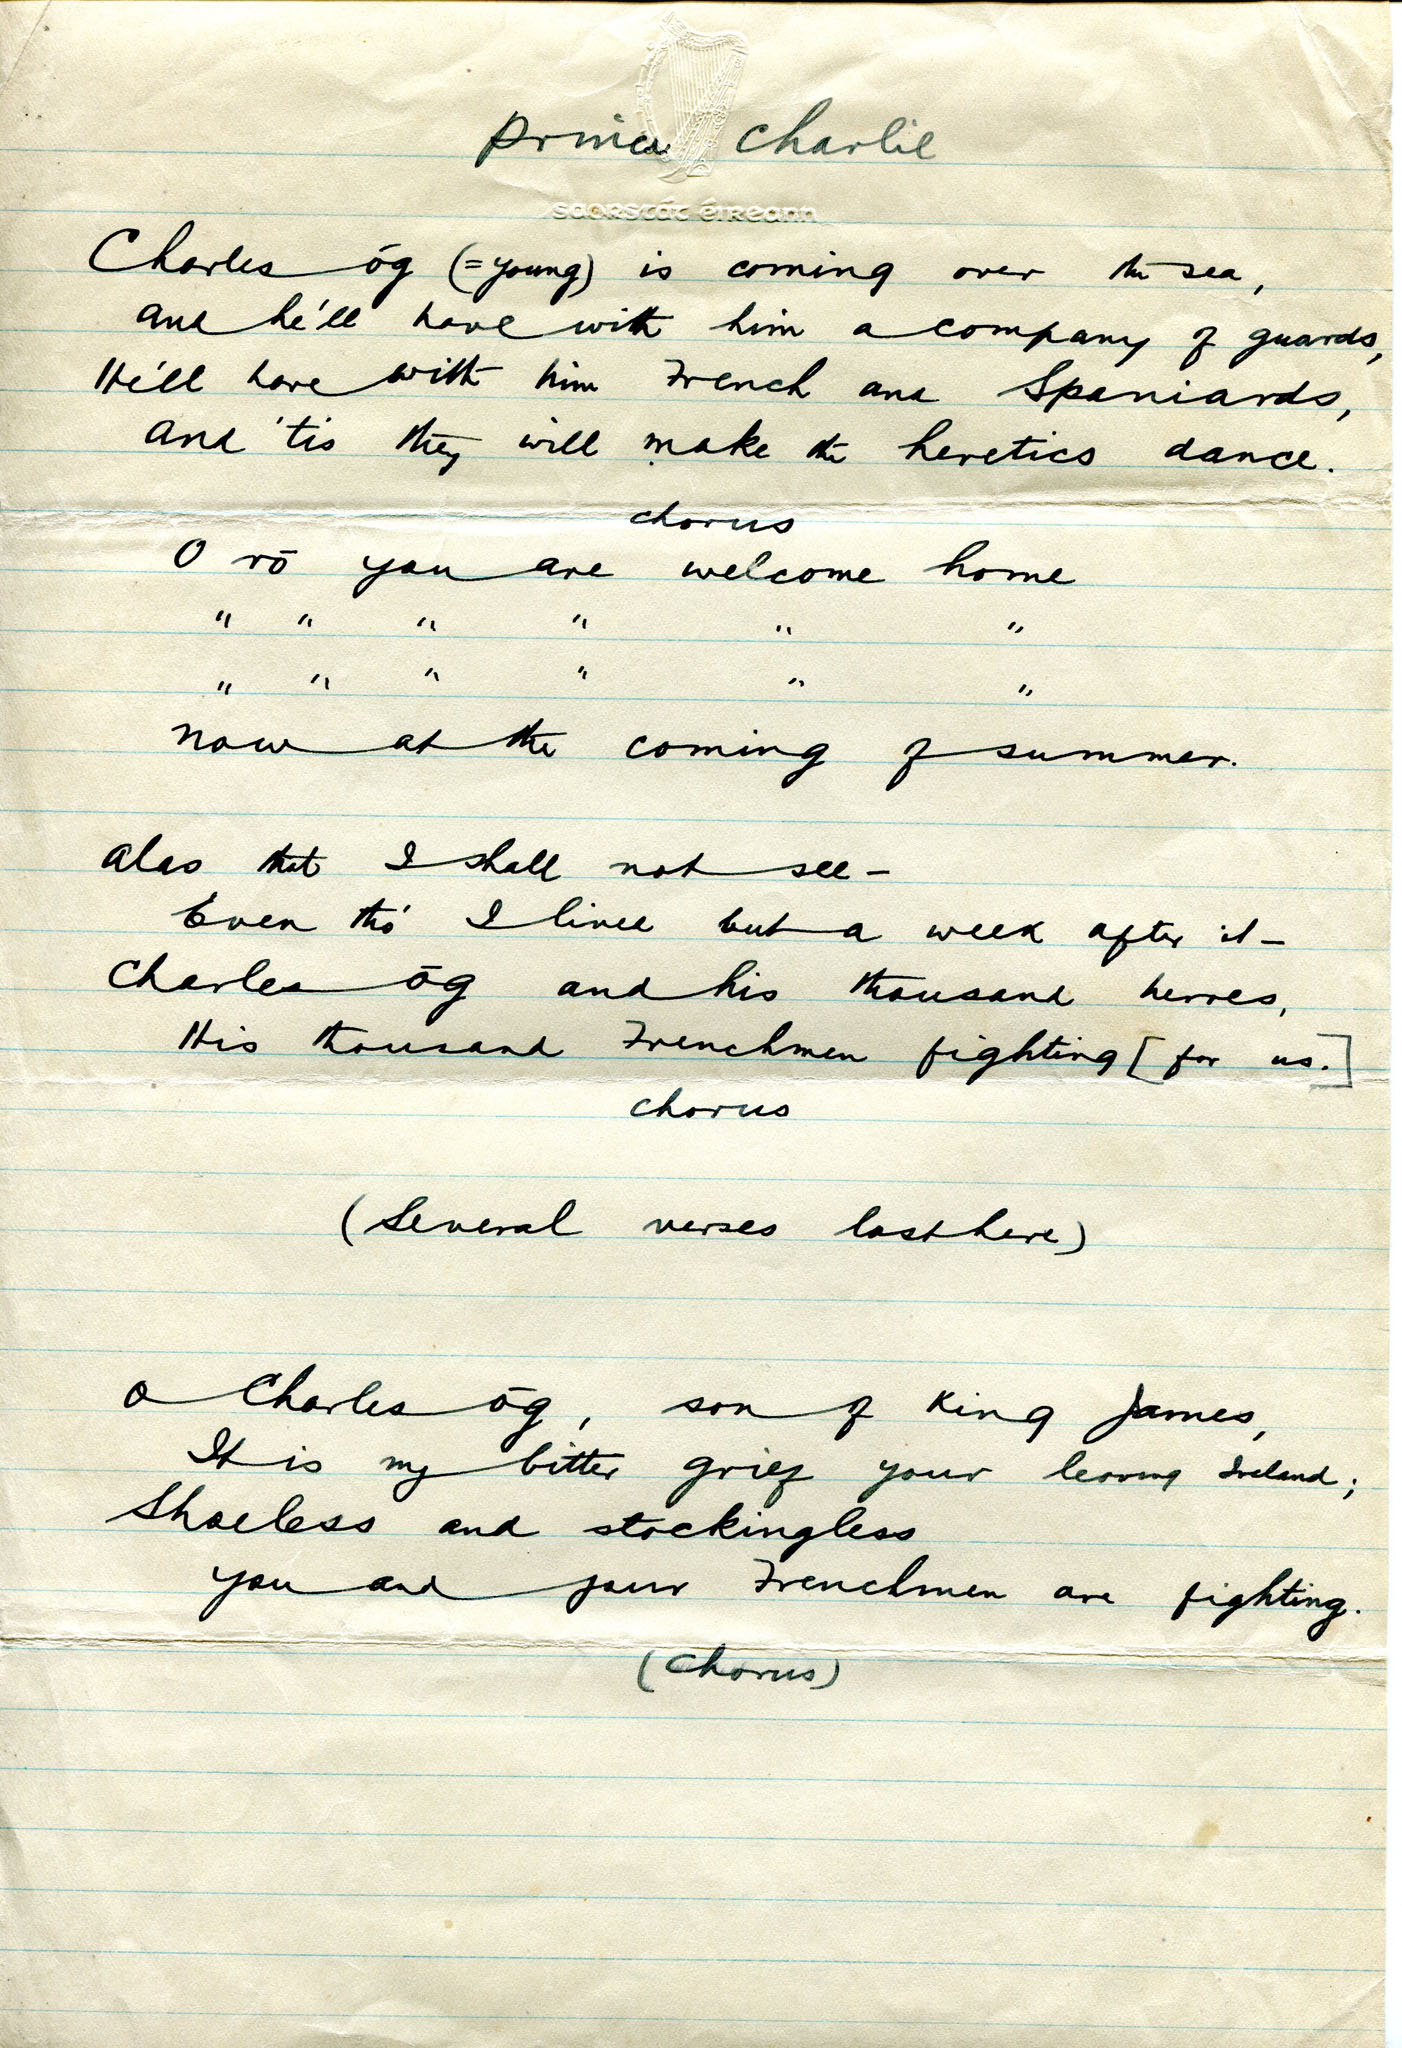 Prince Charlie
SAORSTÁT ÉIREANN
Charles óg (=young) is coming over the sea,
and he'll have with him a company of guards,
He'll have with him French and Spaniards,
and 'tis they will make the heretics dance.
chorus
O ró you are welcome home
" " " " " "
" " " " " "
now at the coming of summer.
alas that I shall not see —
Even tho' I lived but a week after it —
Charles óg and his thousand heroes,
His thousand Frenchmen fighting [for us.]
chorus
(Several verses lost here)
O Charles óg, son of King James,
It is my bitter grief your leaving Ireland;
Shoeless and stockingless
you and your Frenchmen are fighting.
(Chorus)